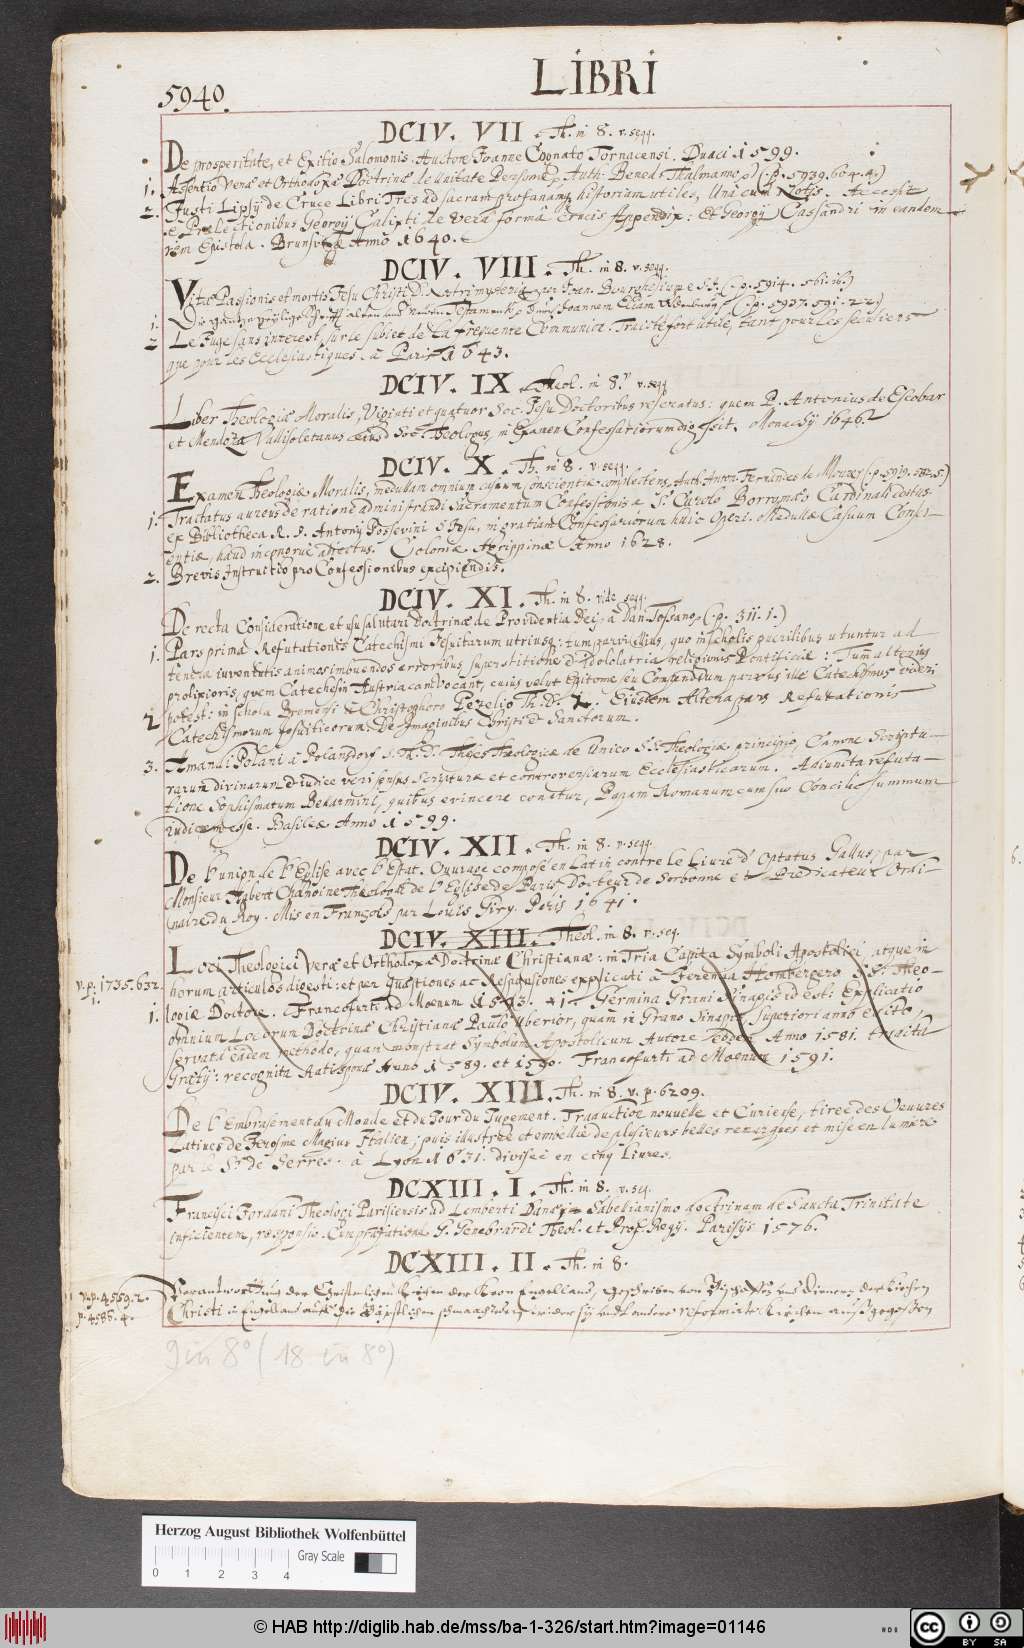 LIBRI
5940.
DCIV. VII. Th. in 8. v. seqq.
De prosperitate, et Exitio Salomonis. Auctore Joanne Cognato Tornacensi. Duaci 1599.
1. Assertio Verae et Orthodoxae Doctrinae de Unitate Personae, Auth. Bened. Thalmanno (p. 5939. 604. 4.)
2. Justi Lipsij de Cruce Libri Tres ad sacram profanamq historiam utiles, Una cum Notis. Accessit
e Praelectionibus Georgij Calixti de vera forma crucis Appendix: Et Georgij Cassandri in eandem
rem Epistola. Brunsvigae Anno 1640.
DCIV. VIII. Th. in 8. v. seqq.
Vitae Passionis et mortis Jesu Christi D. Nostri mysteria per Joan. Bourghesium e S.J. (p. 5914. 561. 16.)
1. Testament (p. 5937. 591. 22.)
2 Le Juge sans interest, sur le subiet de la frequente Communion. Traicté fort utile, tant pour les seculiers
que pour les Ecclesiastiques. à Paris 1643.
DCIV. IX. Theol. in 8. v. seqq
Liber Theologiae Moralis, Viginti et quatuor Soc. Jesu Doctoribus reseratus: quem P. Antonius de Escobar
et Mendoza Vallisoletanus eiusd Soc. Theologus, in Examen Confessariorum digessit. Monachij 1646.
DCIV. X. Th. in 8. v. seqq.
Examen Theologiae Moralis, medullam omnium casuum conscientiae complectens, Auth. Anton. Fernandes de Moure (p. 5919. 582. 5)
1. Tractatus aureus de ratione administrandi Sacramentum Confessionis a S. Carolo Borromaeo Cardinali editus.
Ex Bibliotheca R. P. Antonij Possevini S. Jesu, in gratiam Confessariorum huic Operi. Medullae Casuum Consci-
entiae, haud incongrue adjectus. Coloniae Agrippinae Anno 1628.
2. Brevis Instructio pro Confessionibus excipiendis.
DCIV. XI. Th. in 8. vide seqq.
De recta Consideratione et usu salutari Doctrinae de Providentia Dei, a Dan. Tossano, (p. 311. 1.)
1. Pars prima Refutationis Catechismi Jesuitarum utriusq: tum parvi illius, quo in scholis puerilibus utuntur ad
tenera iuventutis animos imbuendos erroribus, superstitione & Idololatria religionis Pontificiae: Tum alterius
prolixioris, quem Catechesin Austriacam vocant, cuius velut Epitome seu Compendium parvus ille Catechismus videri
potest: in schola Bremensi à Christophoro Pezelio Th. D.
2 Eiusdem Altera pars Refutationis
Catechismorum Jesuiticorum, De Imaginibus Christi & Sanctorum.
3. Amandi Polani à Polansdorf S. Th. D. Theses Theologicae de Unico S.S. Theologiae principio, Canone Scriptu-
rarum Divinarum & iudice veri sensus Scripturae et controversiarum Ecclesiasticarum. Adiuncta refuta-
tione Sophismatum Bellarmini, quibus evincere conatur, Papam Romanum cum suo Concilio summum
iudicem esse. Basileae Anno 1599.
DCIV. XII. Th. in 8. v. seqq.
De l'union de l'Eglise avec l'Estat. Ouvrage composé en Latin contre le Livre d'Optatus Gallus, par
Monsieur Habert Chanoine Theologal de l'Eglise de Paris Docteur de Sorbonne et Predicateur Ordi-
naire du Roy. Mis en François par Louis Giry. Paris 1641.
DCIV. XIII. Theol. in 8. v. seq.
Loci Theologici Verae et Orthodoxae Doctrinae Christianae: in Tria Capita Symboli Apostolici, atque in
v. p. 1735. 632. 1.
horum articulos digesti: et per Quaestiones ac Responsiones explicati à Jeremia Hombergero S.S. Theo-
logiae Doctore. Francofurti ad Moenum 1593.
1. Germina Grani Sinapis id est: Explicatio
omnium Locorum Doctrinae Christianae Paulò Uberior, quàm in Grano Sinapis superiori anno edito,
servatâ eâdem methodo, quam monstrat Symbolum Apostolicum Autore eodem Anno 1581.
Graetij: recognita Ratisponae Anno 1589. et 1590. Francofurti ad Moenum 1591.
DCIV. XIII. Th. in 8. v. p. 6209.
De l'Embrasement du Monde et du Jour du Jugement. Traduction nouvelle et Curieuse, tirée des Oeuvres
Latines de Jerosme Magius Italien; puis illustrée et embellie de plusieurs belles remarques et mise en lumiere
par le Sr. de Serres. à Lyon 1631. divisée en cinq Livres.
DCXIII. I. Th. in 8. v. seq.
Francisci Jordani Theologi Parisiensis ad Lamberti Danaei Sabellianismo doctrinam de Sancta Trinitate
inficientem, responsio. Cum praefatione G. Genebrardi Theol. et Prof. Regij. Parisijs 1576.
DCXIII. II. Th. in 8.
Verantwortung der Christlichen Kirchen der Kron Engelland, geschrieben von Bischoffen und Dienern der Kirchen
v. p. 4559. 2.
p. 4585. 4.
Christi in Engelland wider die Päpstischen reformirte Kirchen außgegossen
9 in 8° (18 in 8°)
Herzog August Bibliothek Wolfenbüttel
Gray Scale
0 1 2 3 4
© HAB http://diglib.hab.de/mss/ba-1-326/start.htm?image=01146
cc BY SA